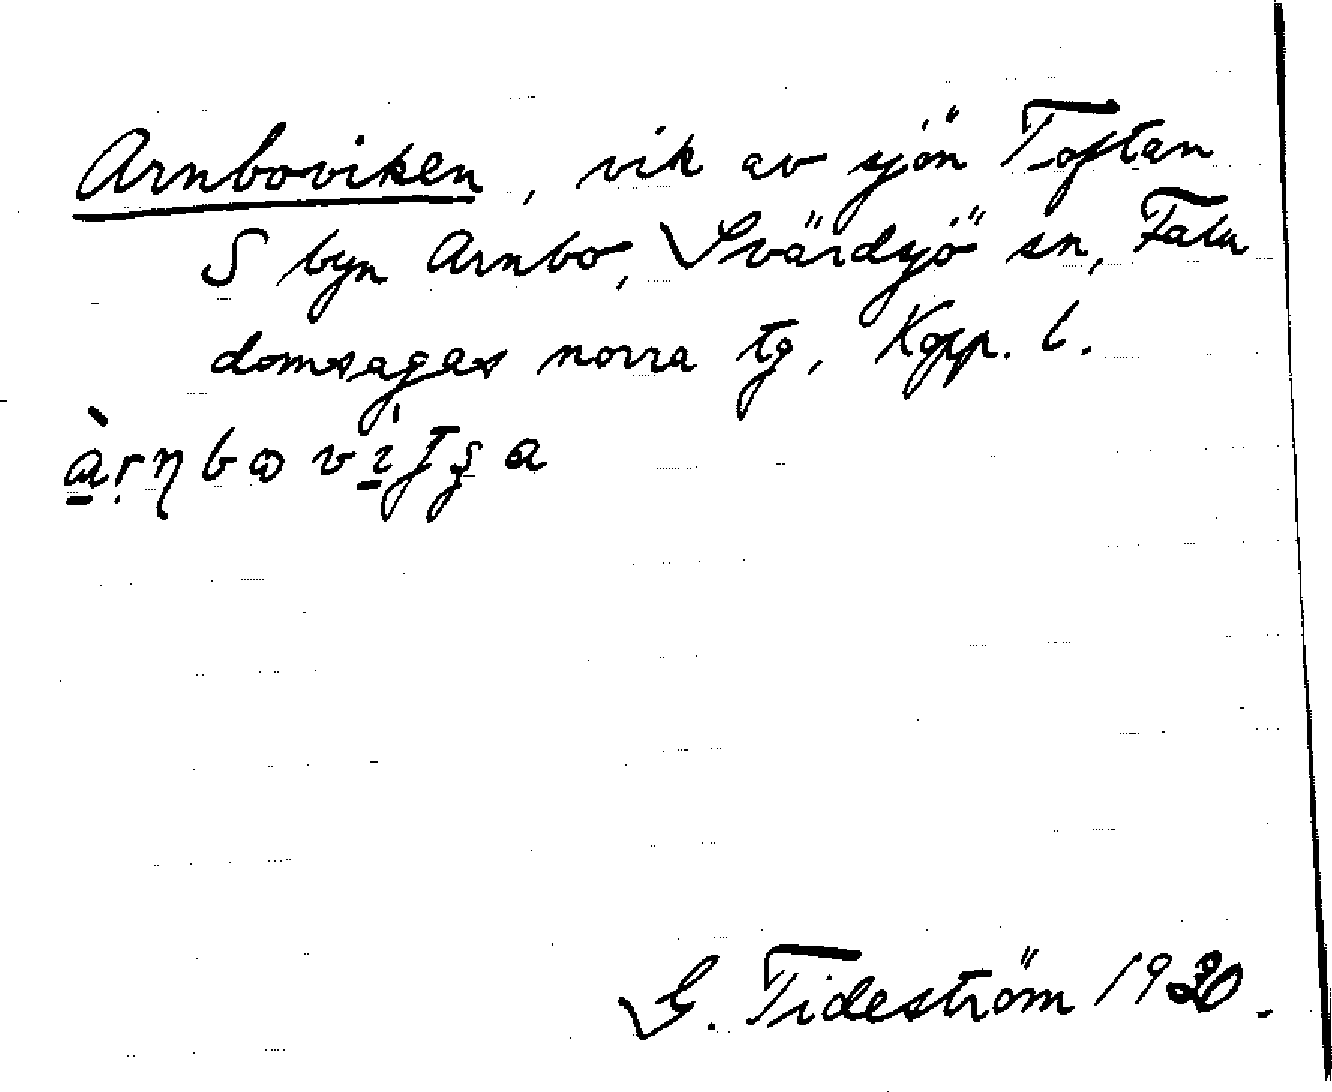 Arnboviken, vik av sjön Toftan
S byn Arnbo, Svärdsjö sn, Falu
domsagas norra tg, Kopp. l.
G. Tideström 1930.